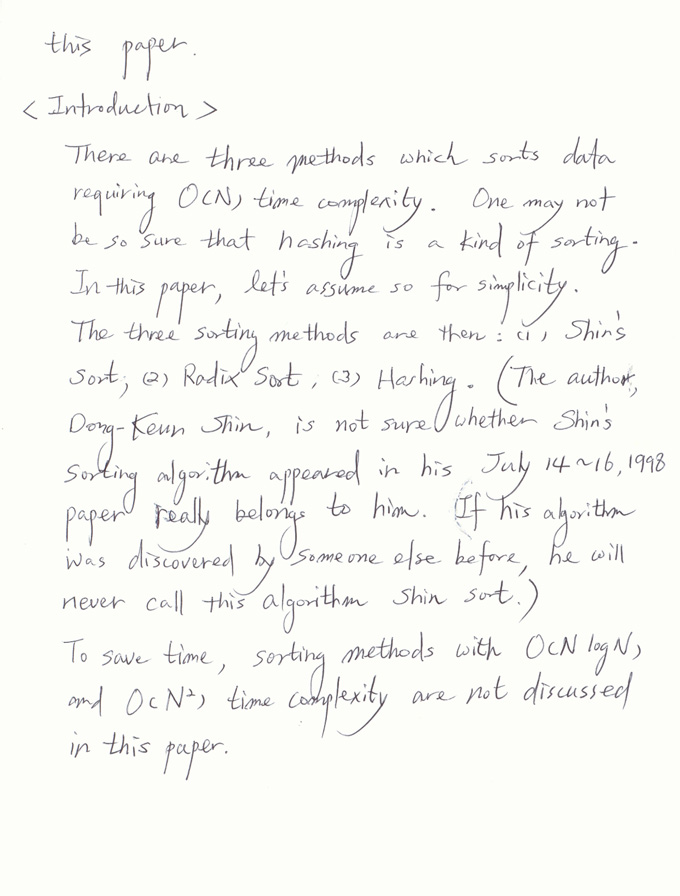 this paper.
< Introduction >
There are three methods which sorts data
requiring O(N) time complexity. One may not
be so sure that hashing is a kind of sorting.
In this paper, let's assume so for simplicity.
The three sorting methods are then : (1) Shin's
Sort, (2) Radix Sort, (3) Hashing. (The author,
Dong-Keun Shin, is not sure whether Shin's
sorting algorithm appeared in his July 14~16, 1998
paper really belongs to him. (If his algorithm
was discovered by someone else before, he will
never call this algorithm Shin sort.)
To save time, sorting methods with O(N log N)
and O(N²) time complexity are not discussed
in this paper.